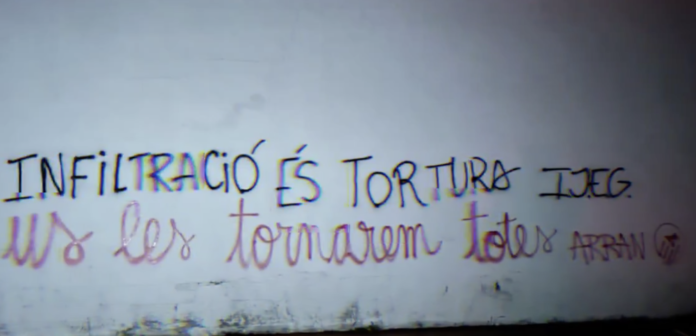 INFiLTRACiÓ ÉS TORTURA IJEG.
us les tornarem totes ARRAN